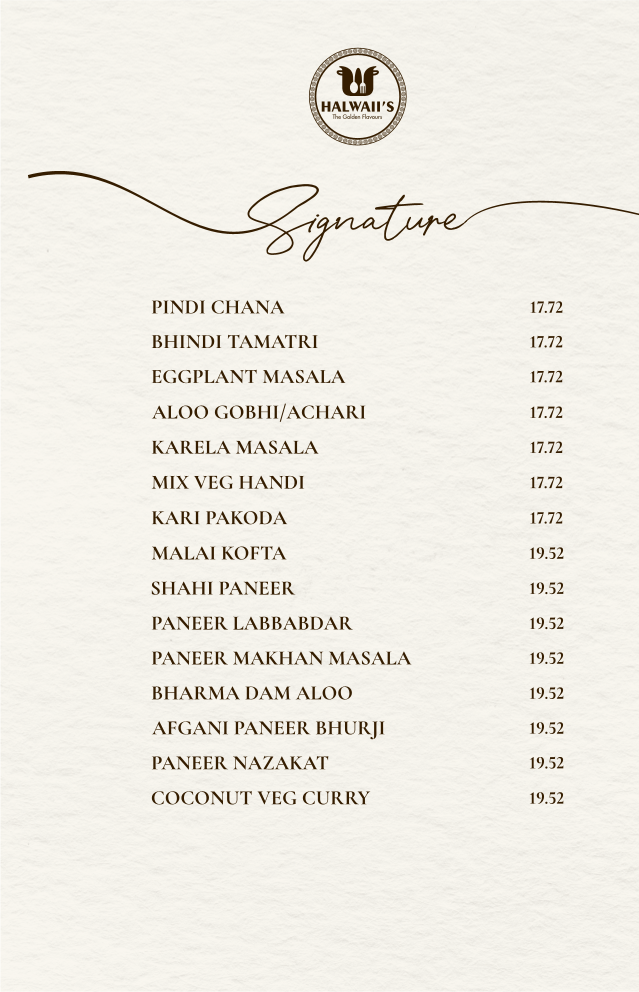 HALWAII'S
The Golden Flavours
Signature
PINDI CHANA 17.72
BHINDI TAMATRI 17.72
EGGPLANT MASALA 17.72
ALOO GOBHI/ACHARI 17.72
KARELA MASALA 17.72
MIX VEG HANDI 17.72
KARI PAKODA 17.72
MALAI KOFTA 19.52
SHAHI PANEER 19.52
PANEER LABBABDAR 19.52
PANEER MAKHAN MASALA 19.52
BHARMA DAM ALOO 19.52
AFGANI PANEER BHURJI 19.52
PANEER NAZAKAT 19.52
COCONUT VEG CURRY 19.52